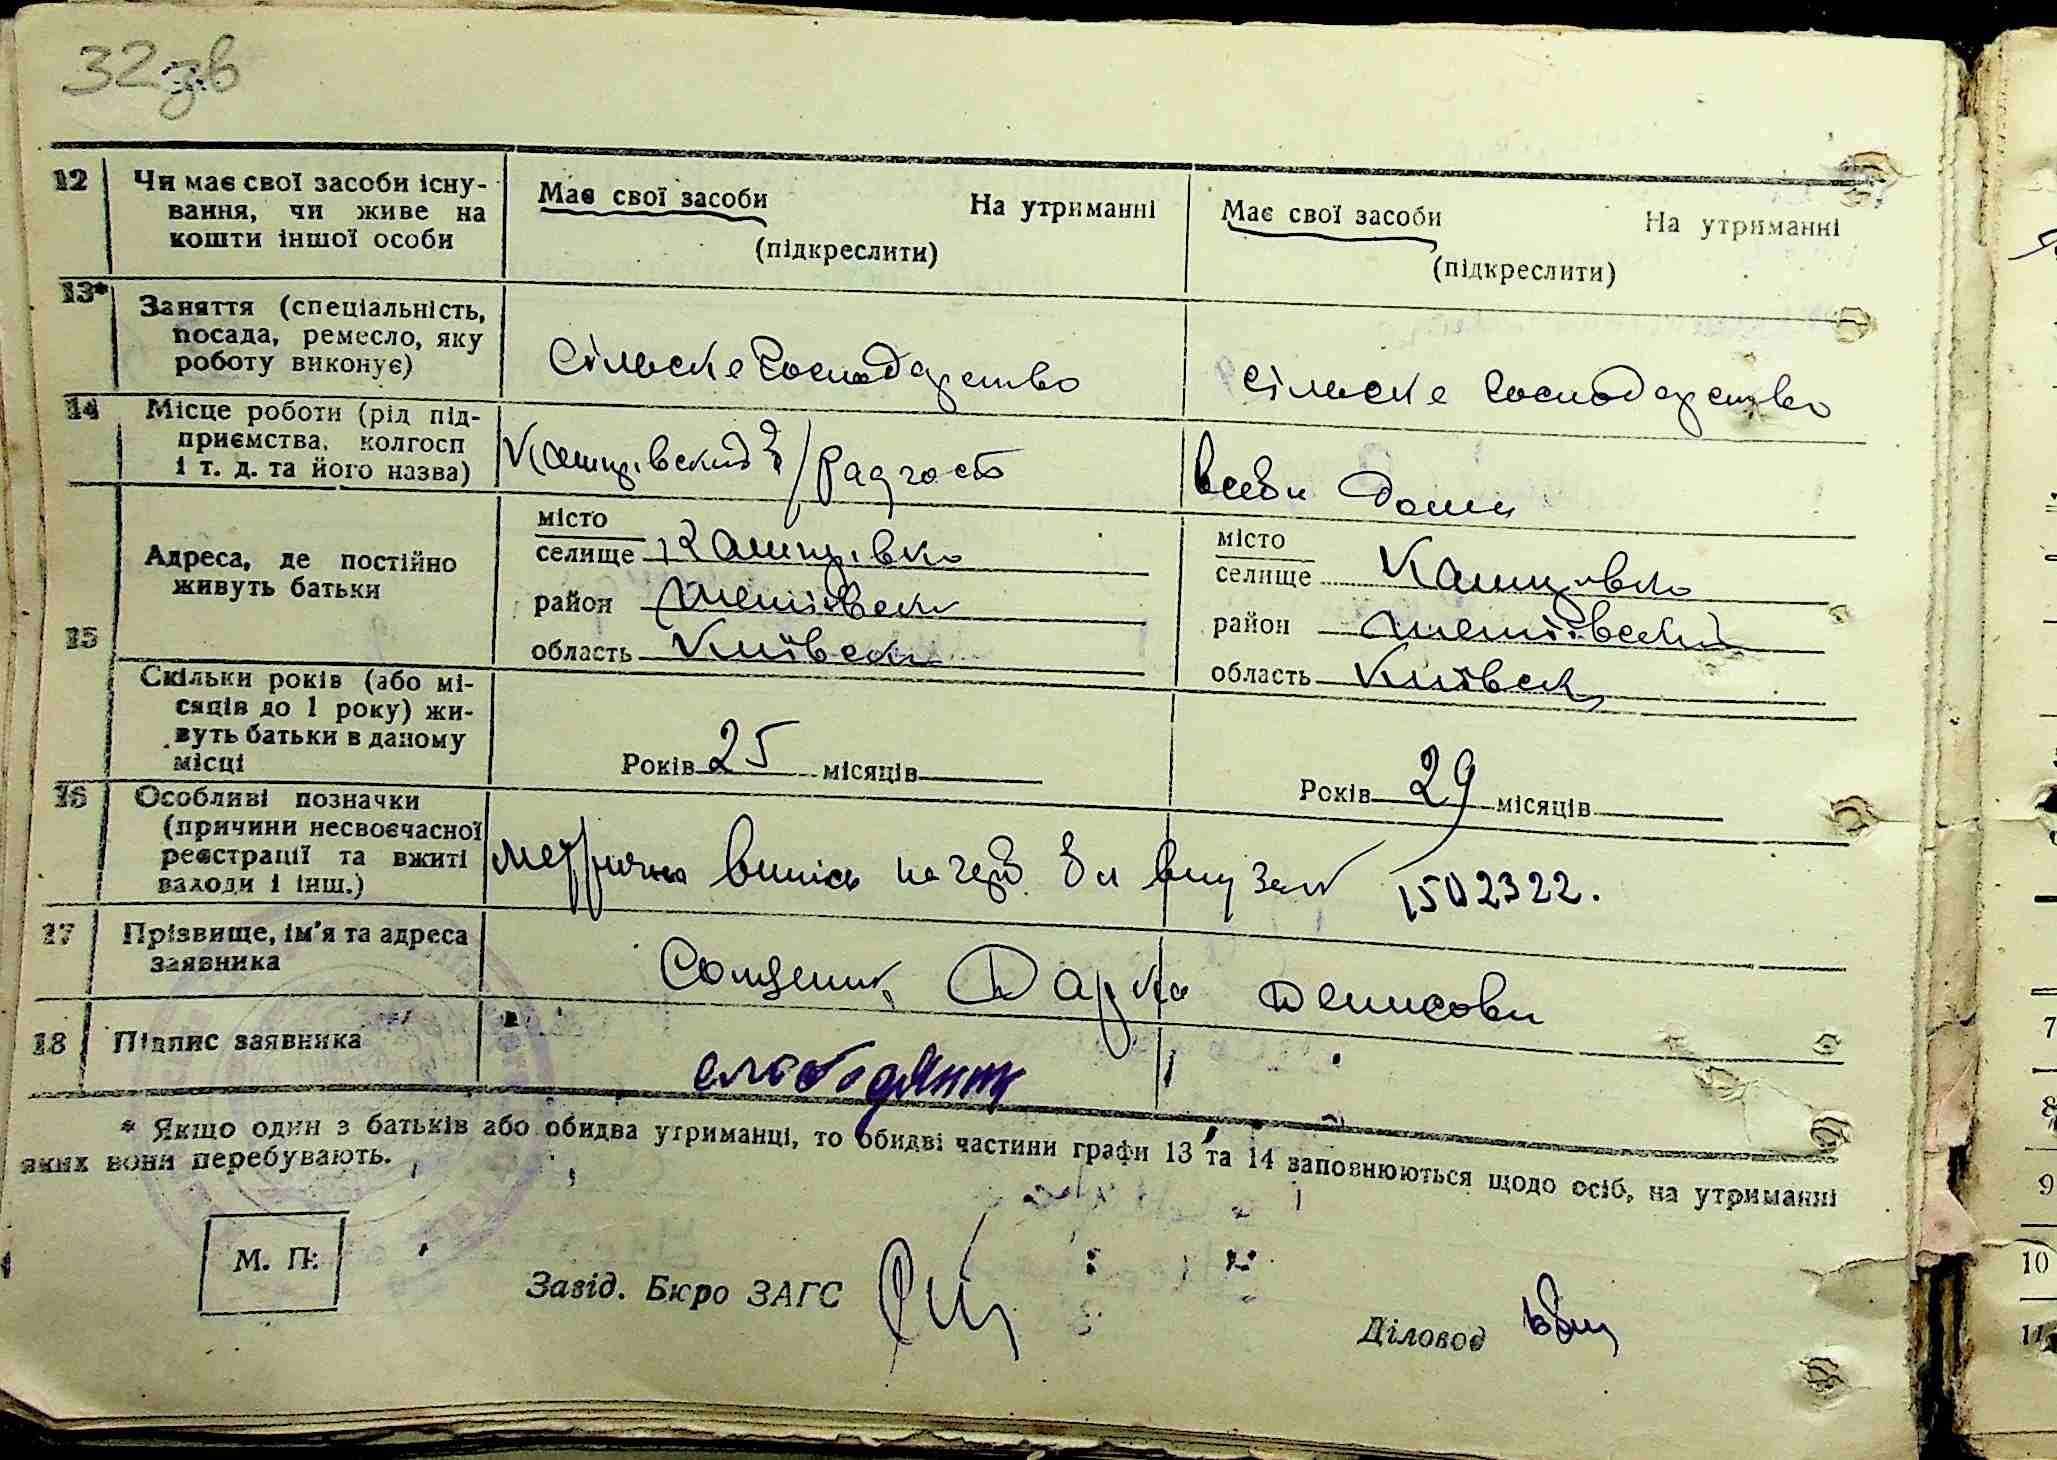 32 зв
12 Чи має свої засоби існу-
вання, чи живе на
кошти іншої особи
Має свої засоби На утриманні
(підкреслити)
Має свої засоби На утриманні
(підкреслити)
13* Заняття (спеціальність,
посада, ремесло, яку
роботу виконує)
Сільське господарство
Сільське господарство
14 Місце роботи (рід під-
приємства, колгосп
і т. д. та його назва)
радгосп
в себе дома
15 Адреса, де постійно
живуть батьки
місто
селище Кашперівка
район Тетіївськ
область Київськ
місто
селище Кашперівка
район Тетіївський
область Київськ
Скільки років (або мі-
сяців до 1 року) жи-
вуть батьки в даному
місці
Років 25 місяців
Років 29 місяців
16 Особливі позначки
(причини несвоєчасної
реєстрації та вжиті
заходи і інш.)
метрична випись 1502322.
17 Прізвище, ім'я та адреса
заявника
Дарка Денисовн
18 Підпис заявника
слободяник
* Якщо один з батьків або обидва утриманці, то обидві частини графи 13 та 14 заповнюються щодо осіб, на утриманні
яких вони перебувають.
М. П.
Завід. Бюро ЗАГС
Діловод
7
8
9
10
11